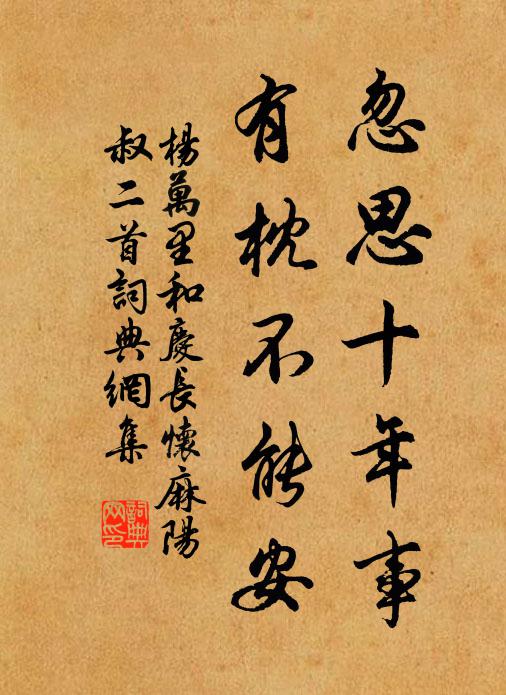 忽思十年事
有枕不能安
楊萬里和慶長懷麻陽
叔二首詞典網集
詞典
网印